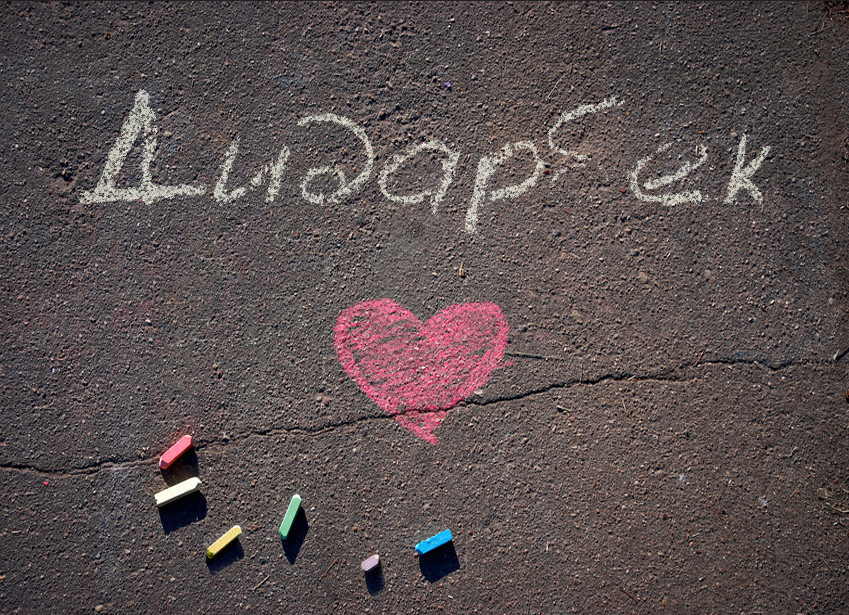 Дидарбек